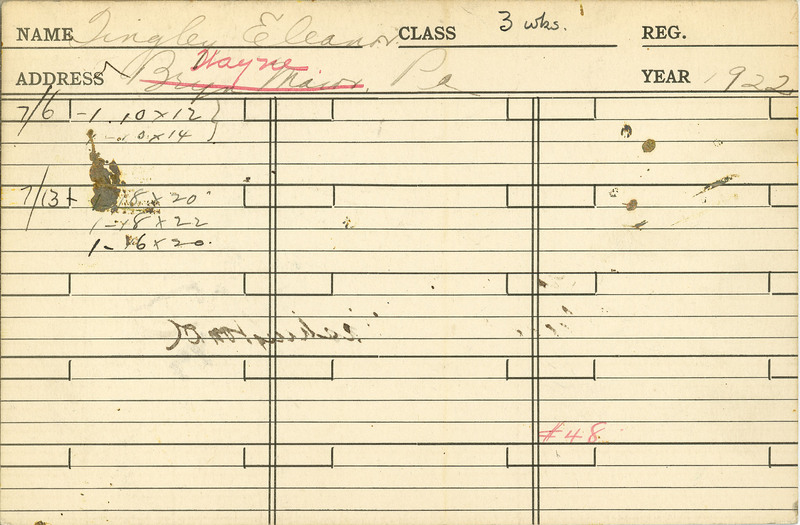 NAME Tingley Eleanor. CLASS 3 wks. REG.
Wayne
ADDRESS Bryn Mawr, Pa YEAR 1922
7/6 -1. 10 x 12 }
x 14 }
7/13 18 x 20
1 - 18 x 22
1 - 16 x 20.
#48